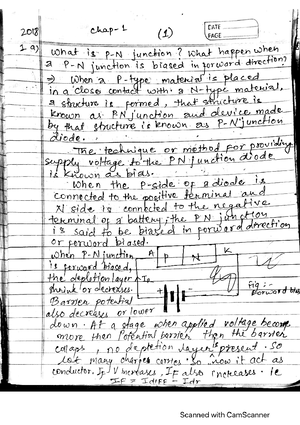 2018
chap-1
(1)
DATE
PAGE
1 a) what is P-N junction? What happen when
a P-N junction is biased in forward direction)
⇒ When a P-type material is placed
in a close contact with a N-type material,
a structure is formed, that structure is
known as PN junction and device made
by that structure is known as P-N junction
diode.
The technique or method for providing
supply voltage to the PN junction diode
is known as bias.
When the P-side of a diode is
connected to the positive terminal and
N side is conected to the negative
terminal of a battery, the PN junction
is said to be biased in forward direction
or forward biased.
When P-N junction
is forward biased,
the depletion layer
shrink or decreases.
Barrier potential
also decreases or lower
A P N K
Fig :-
Forward bias
down. At a stage when applied voltage become
more then Potential barrier then the barrier
collaps, no depletion layer is present. So
lost many charges carries so now it act as
conductor. If V increases, IF also increases. ie
IF = Idiff - Idr
Scanned with CamScanner